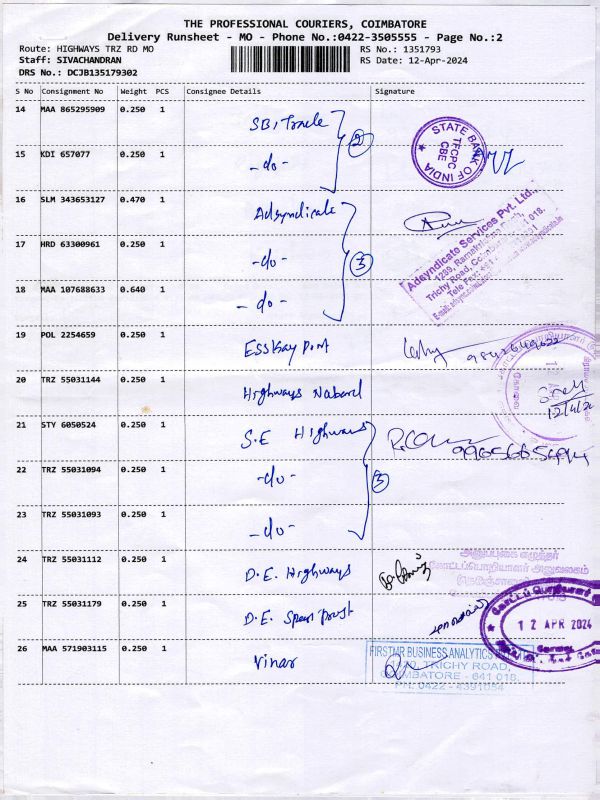 THE PROFESSIONAL COURIERS, COIMBATORE
Delivery Runsheet - MO - Phone No.:0422-3505555 - Page No.:2
Route: HIGHWAYS TRZ RD MO RS No.: 1351793
Staff: SIVACHANDRAN RS Date: 12-Apr-2024
DRS No.: DCJB135179302
S No Consignment No Weight PCS Consignee Details Signature
14 MAA 865295909 0.250 1
STATE BANK OF INDIA
TFCPC
CBE
15 KDI 657077 0.250 1 -do- 2
16 SLM 343653127 0.470 1 Adsyndicate
Adsyndicate Services Pvt. Ltd.,
17 HRD 63300961 0.250 1 -do- 3
18 MAA 107688633 0.640 1 -do-
19 POL 2254659 0.250 1
20 TRZ 55031144 0.250 1 Highways
21 STY 6050524 0.250 1 S.E Highways
22 TRZ 55031094 0.250 1 -do- 3
23 TRZ 55031093 0.250 1 -do-
24 TRZ 55031112 0.250 1 D.E. Highways
25 TRZ 55031179 0.250 1 D.E
12 APR 2024
26 MAA 571903115 0.250 1
FIRSTMR BUSINESS ANALYTICS
TRICHY ROAD,
COIMBATORE - 641 018.
PH: 0422 - 4391084